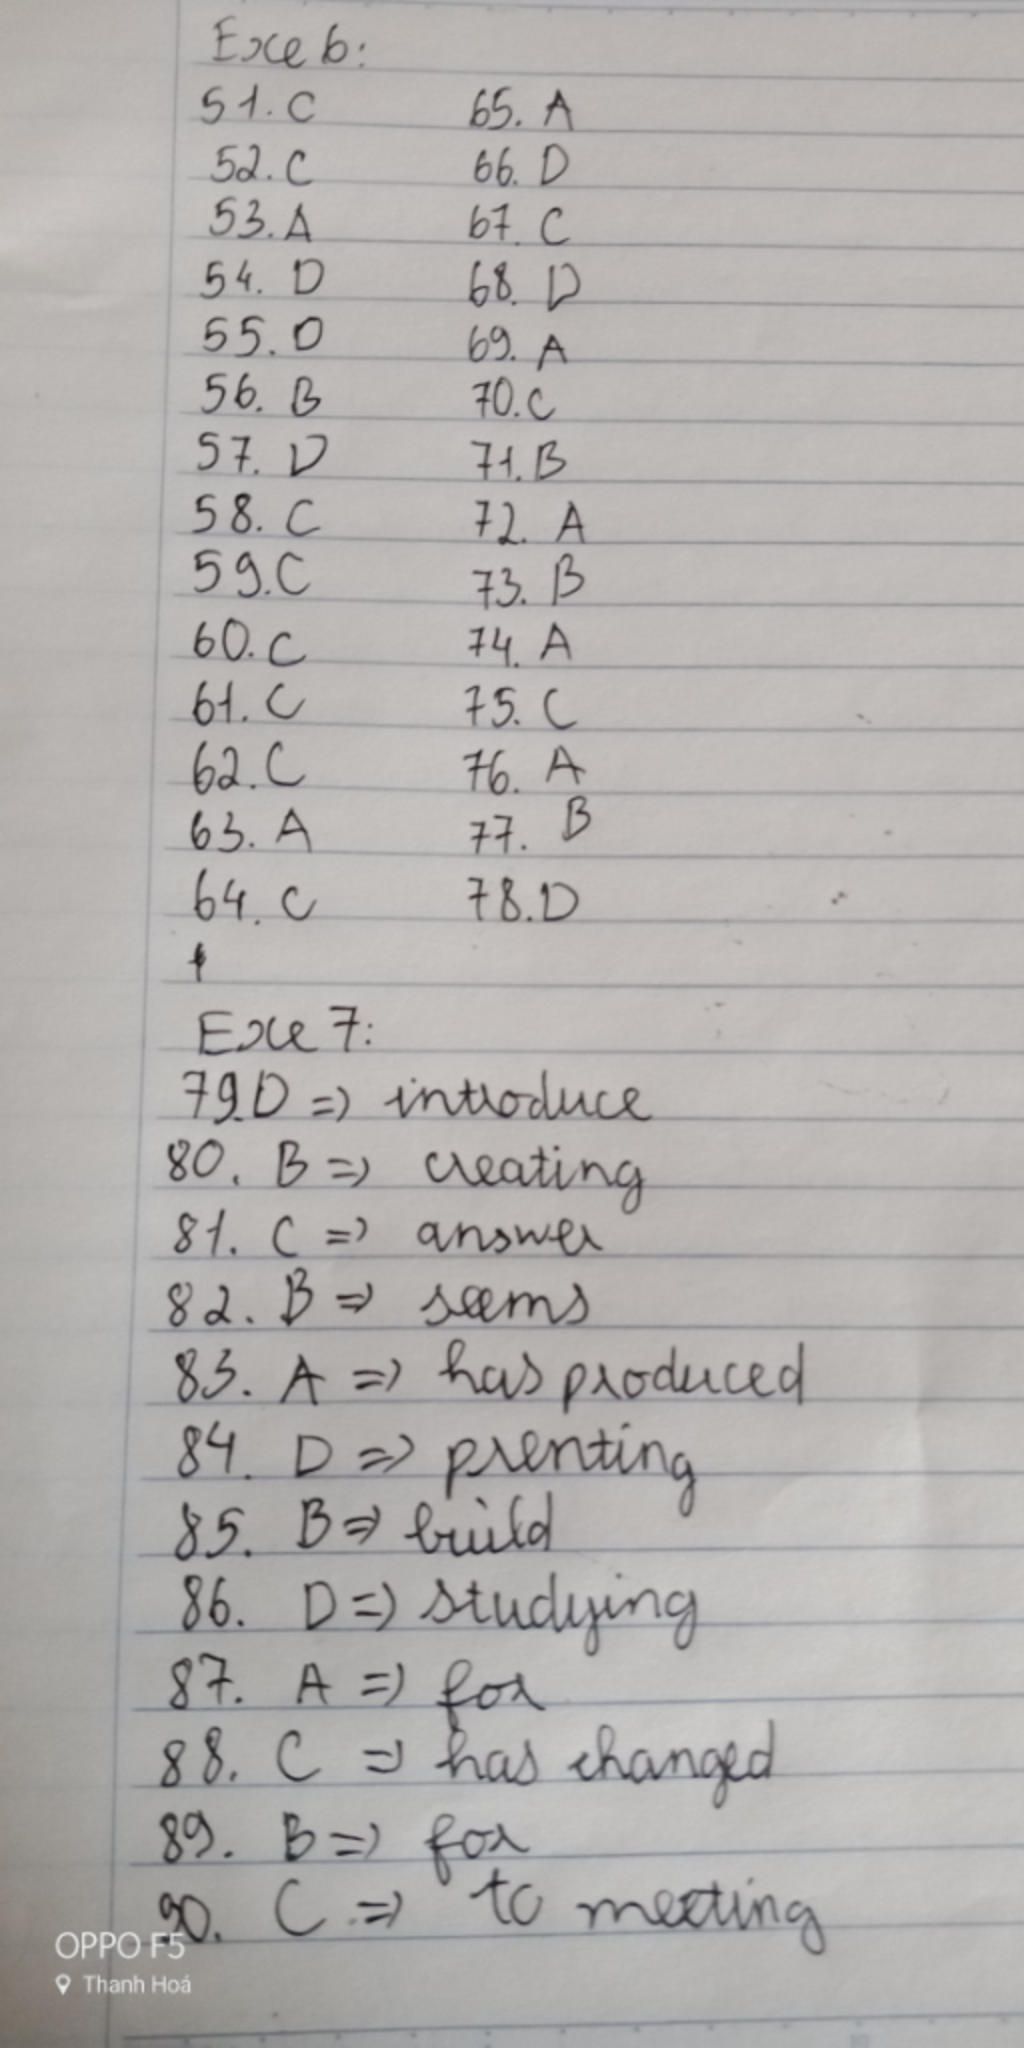 Exe 6:
51. C
52. C
53. A
54. D
55. D
56. B
57. D
58. C
59. C
60. C
61. C
62. C
63. A
64. C
65. A
66. D
67. C
68. D
69. A
70. C
71. B
72. A
73. B
74. A
75. C
76. A
77. B
78. D
Exe 7:
79. D => introduce
80. B => creating
81. C => answer
82. B => seems
83. A => has produced
84. D => prenting
85. B => build
86. D => studying
87. A => for
88. C => has changed
89. B => for
90. C => to meeting
OPPO F5
Thanh Hoá